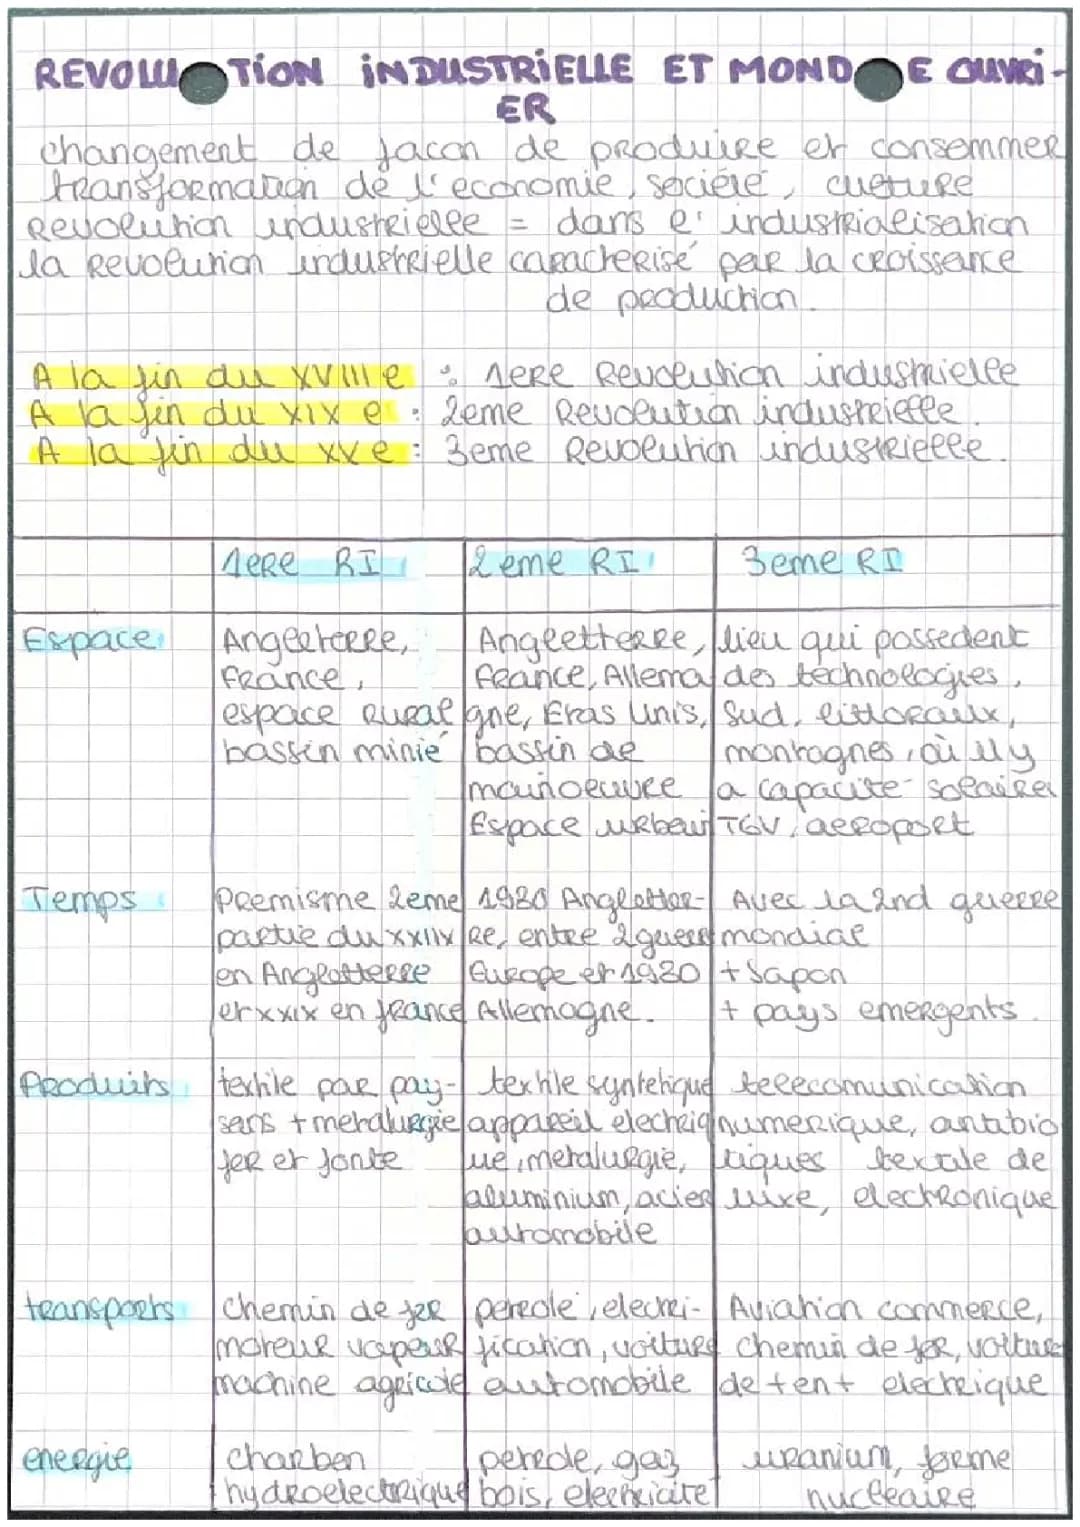 REVOLUTION INDUSTRIELLE ET MONDE OUVRI-
ER
changement de facon de produire et consommer
transformation de l'economie, sociéte, culture
Revolution industrielle = dans l'industrialisation
la Revolution industrielle caracterisé par la croissance
de production.
A la fin du XVIII e : 1ERE Revolution industrielle
A la fin du XIX e : 2eme Revolution industrielle.
A la fin du XX e : 3eme Revolution industrielle.
1ERE RI
2eme RI
3eme RI
Espace
Angleterre,
France,
espace rural
bassin minié
Angletterre,
France, Allema
gne, Etas Unis,
bassin de
mainoeuvre
Espace urbain
lieu qui possedent
des technologies,
Sud, littoraux,
montagnes, où il y
a capacite solaire
TGV, aeroport
Temps
Premisme 2eme
partie du xxiix
en Angletterre
et xxix en france
1920 Angletter-
re, entre 2 guerr
Europe et 1930
Allemagne.
Avec la 2nd guerre
mondial
+ Japon
+ pays emergents.
Produits
textile par pay-
sans + metalurgie
fer et fonte
textile syntetique
appareil electriq
ue, metalurgie,
aluminium, acier
automobile
telecomunication
numerique, antibio
tiques textile de
luxe, electronique
transports
Chemin de fer
moteur vapeur
machine agricole
petrole, electri-
fication, voiture
automobile
Aviation commerce,
chemin de fer, voiture
de tent electrique
energie
charbon
hydroelectrique
petrole, gaz
bois, electricite
uranium, forme
nucleaire